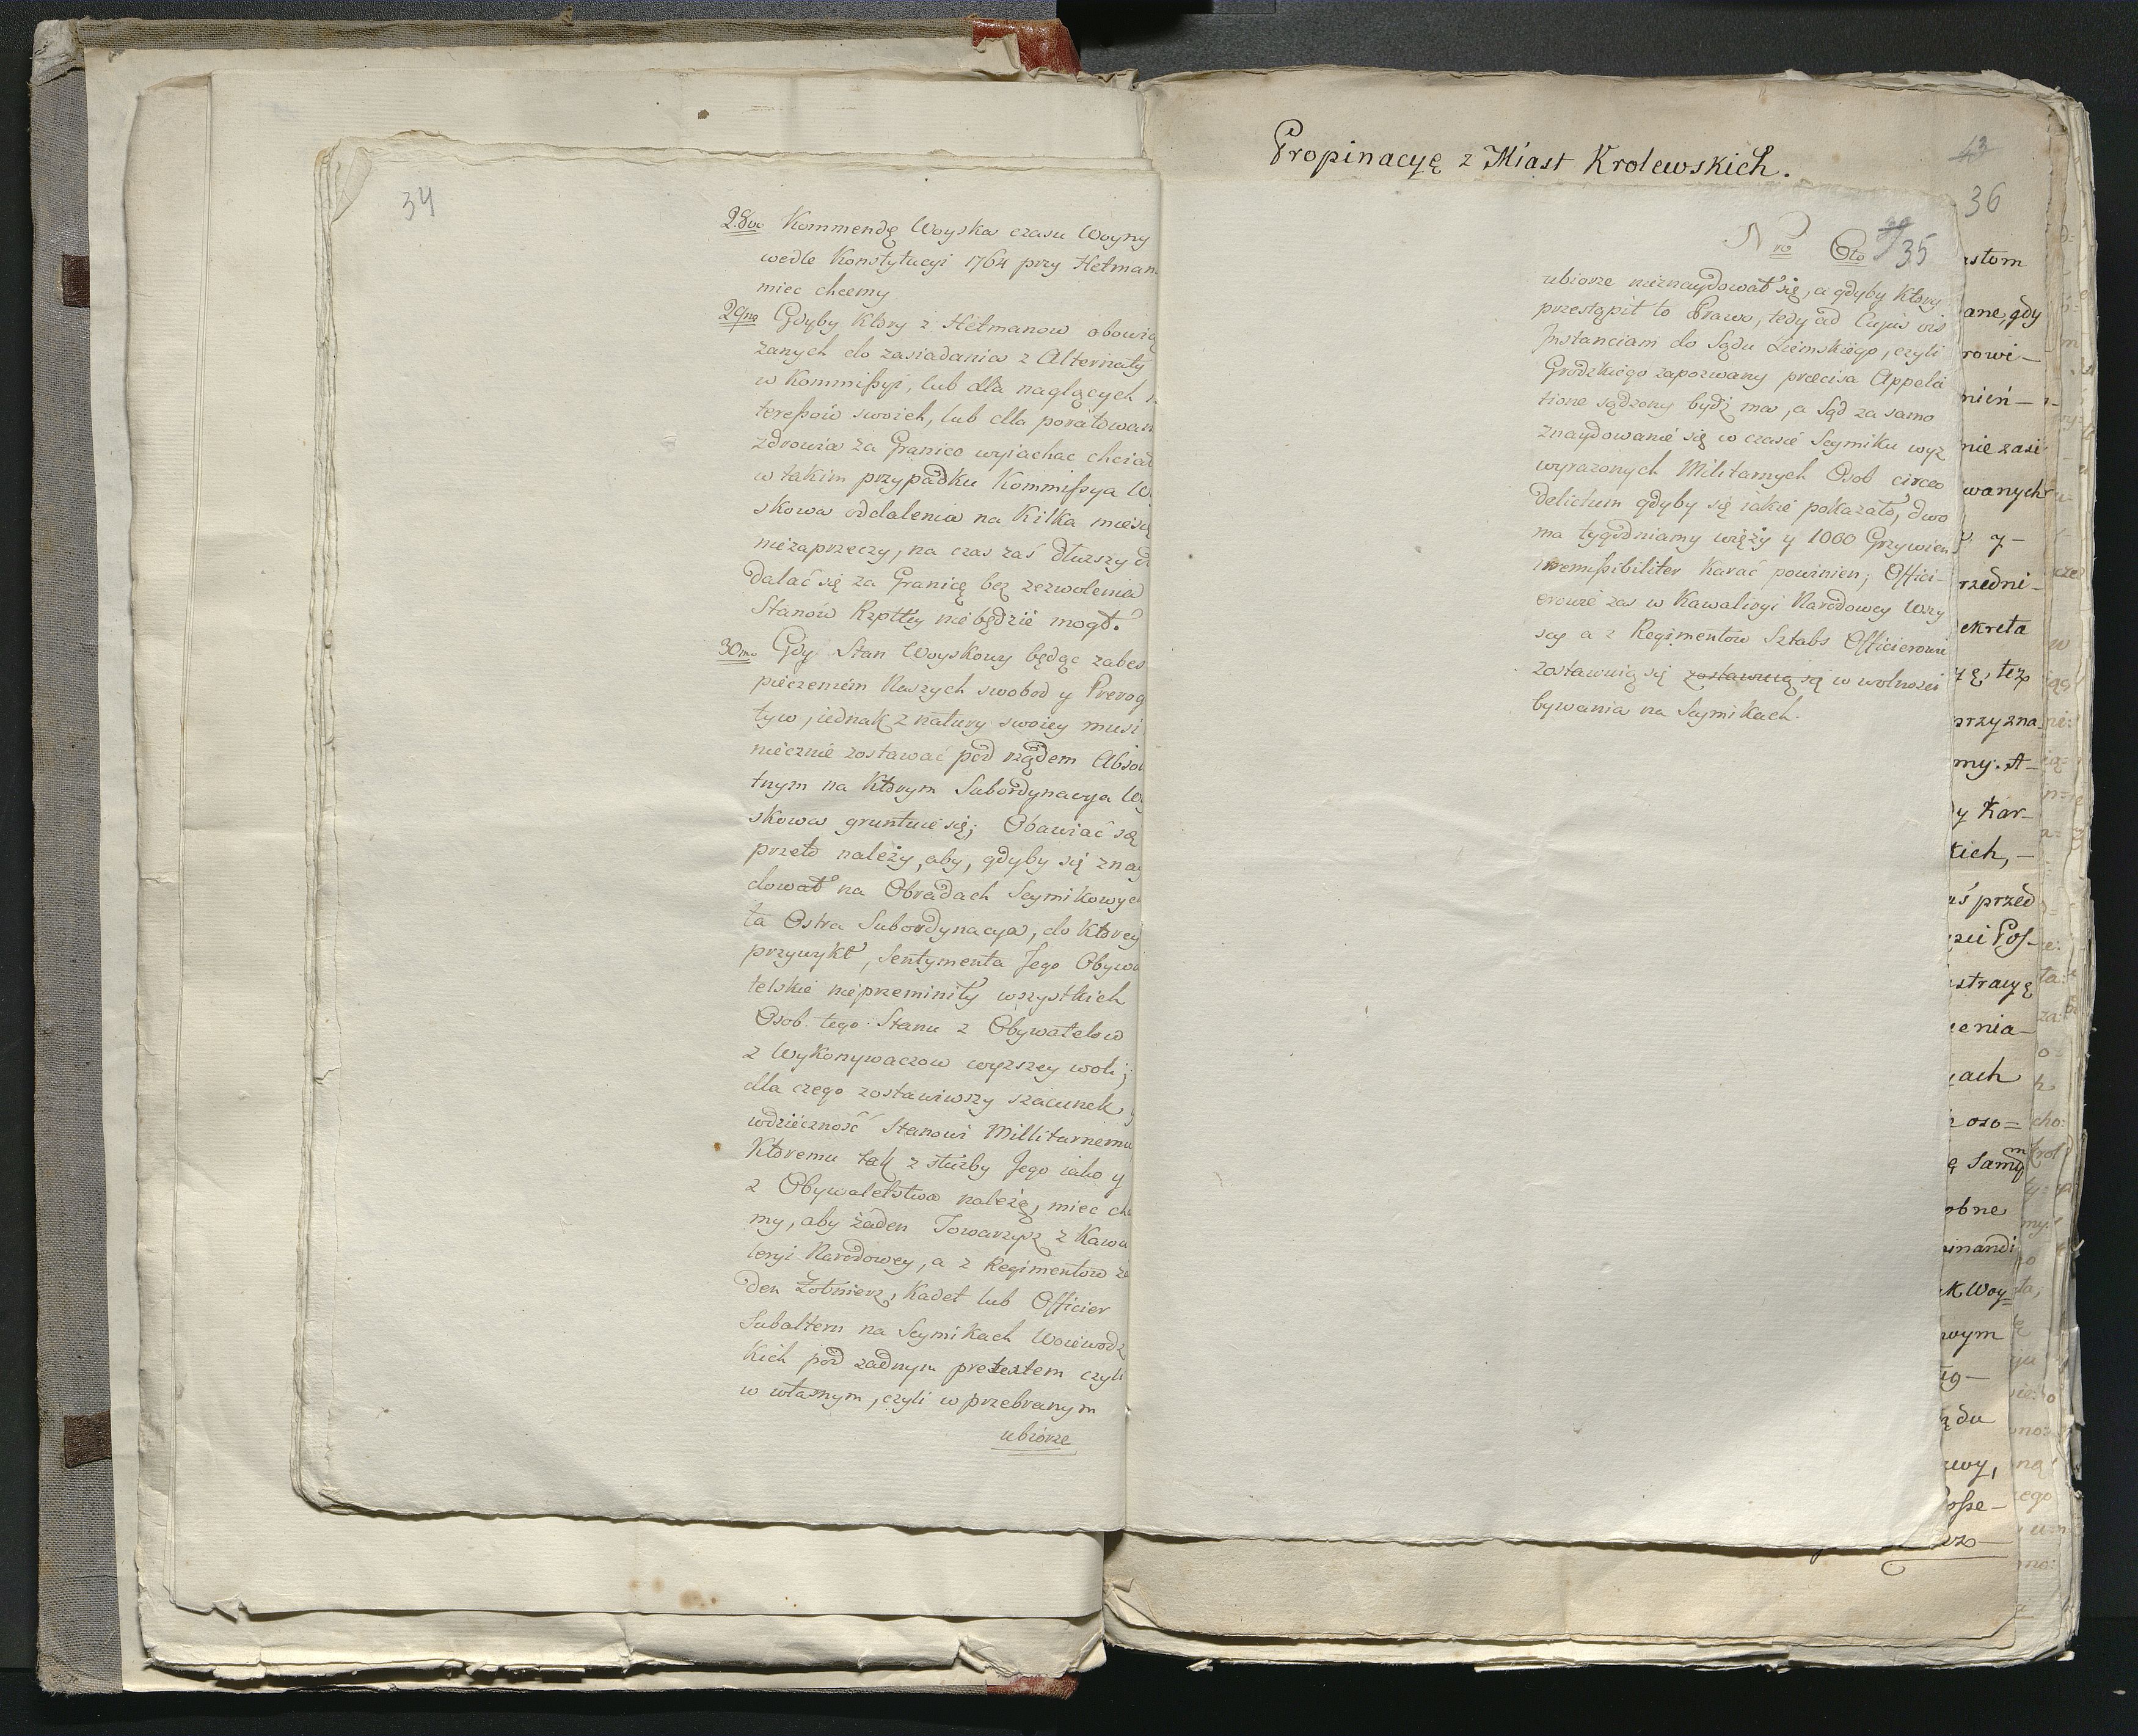 34
28vo Kommendę Woyska czasu Woyny
wedle Konstytucyi 1764 przy Hetman
miec chcemy
29no Gdyby Ktory z Hetmanow obowią
zanych do zasiadania z Alternaty
w Kommissyi, lub dla naglących
teressow swoich, lub dla poratowan
zdrowia za Granice wyiachac chciał
w takim przypadku Kommissya W
skowa oddalenia na Kilka miesię
niezaprzeczy, na czas zaś dłuzszy
dalać się za Granicę bez zezwolenia
Stanow Rzpltey nie będzie mogł.
30mo Gdy Stan Woyskowy będąc zabes
pieczeniem Naszych swobod y Prerog
tyw, iednak z natury swoiey musi
niecznie zostawać pod rządem Absol
tnym na Ktorym Subordynacya W
skowa gruntuie się; Obawiać się
przeto należy, aby, gdyby się znay
dował na Obradach Seymikowych
ta Ostra Subordynacya, do Ktorey
przywykł, Sentymenta Jego Obywa
telskie nieprzeminiły wszystkich
Osob tego Stanu z Obywatelow
z Wykonywaczow wyzszey woli;
dla czego zostawiwszy szacunek y
wdzięczność Stanowi Millitarnemu
Ktoremu tak z służby Jego iako y
z Obywatelstwa należą, miec chce
my, aby żaden Towarzysz z Kawa
leryi Narodowey, a z Regimentow ża
den Żołnierz, Kadet lub Officier
Subaltern na Seymikach Woiewodz
Kich pod zadnym pretextem czyli
w własnym, czyli w przebranym
ubiorze
Propinacyę z Miast Krolewskich.
43
36
35
ubiorze nieznaydował się, a gdyby Ktory
przestąpił to Prawo, tedy ad Cujus vis
Instanciam do Sądu Ziemskiego, czyli
Grodzkiego zapozwany praecisa Appela
tione sądzony bydź ma, a Sąd za samo
znaydowanie się w czasie Seymiku wyz
wyrazonych Militarnych Osob circa
delictum gdyby się iakie pokazało, dwo
ma tygodniamy wieży y 1000 Grzywien
irremissibiliter karać powinien; Offici-
erowie zas w Kawaliryi Narodowey wszy
scy a z Regimentow Sztabs Officierowie
zostawuią się zostawuią się w wolnosci
bywania na Seymikach.
stom
ane, gdy
rowi-
nień-
nie zasi
wanych
y-
rzedni-
ekreta
yę, też
przyzna
my. A-
y Kar-
kich,-
ś przed
Pos-
stracyę
enia-
ach
oso=
ę samy
obne
inandi
k Woy=
wym
du
wy,
osse-